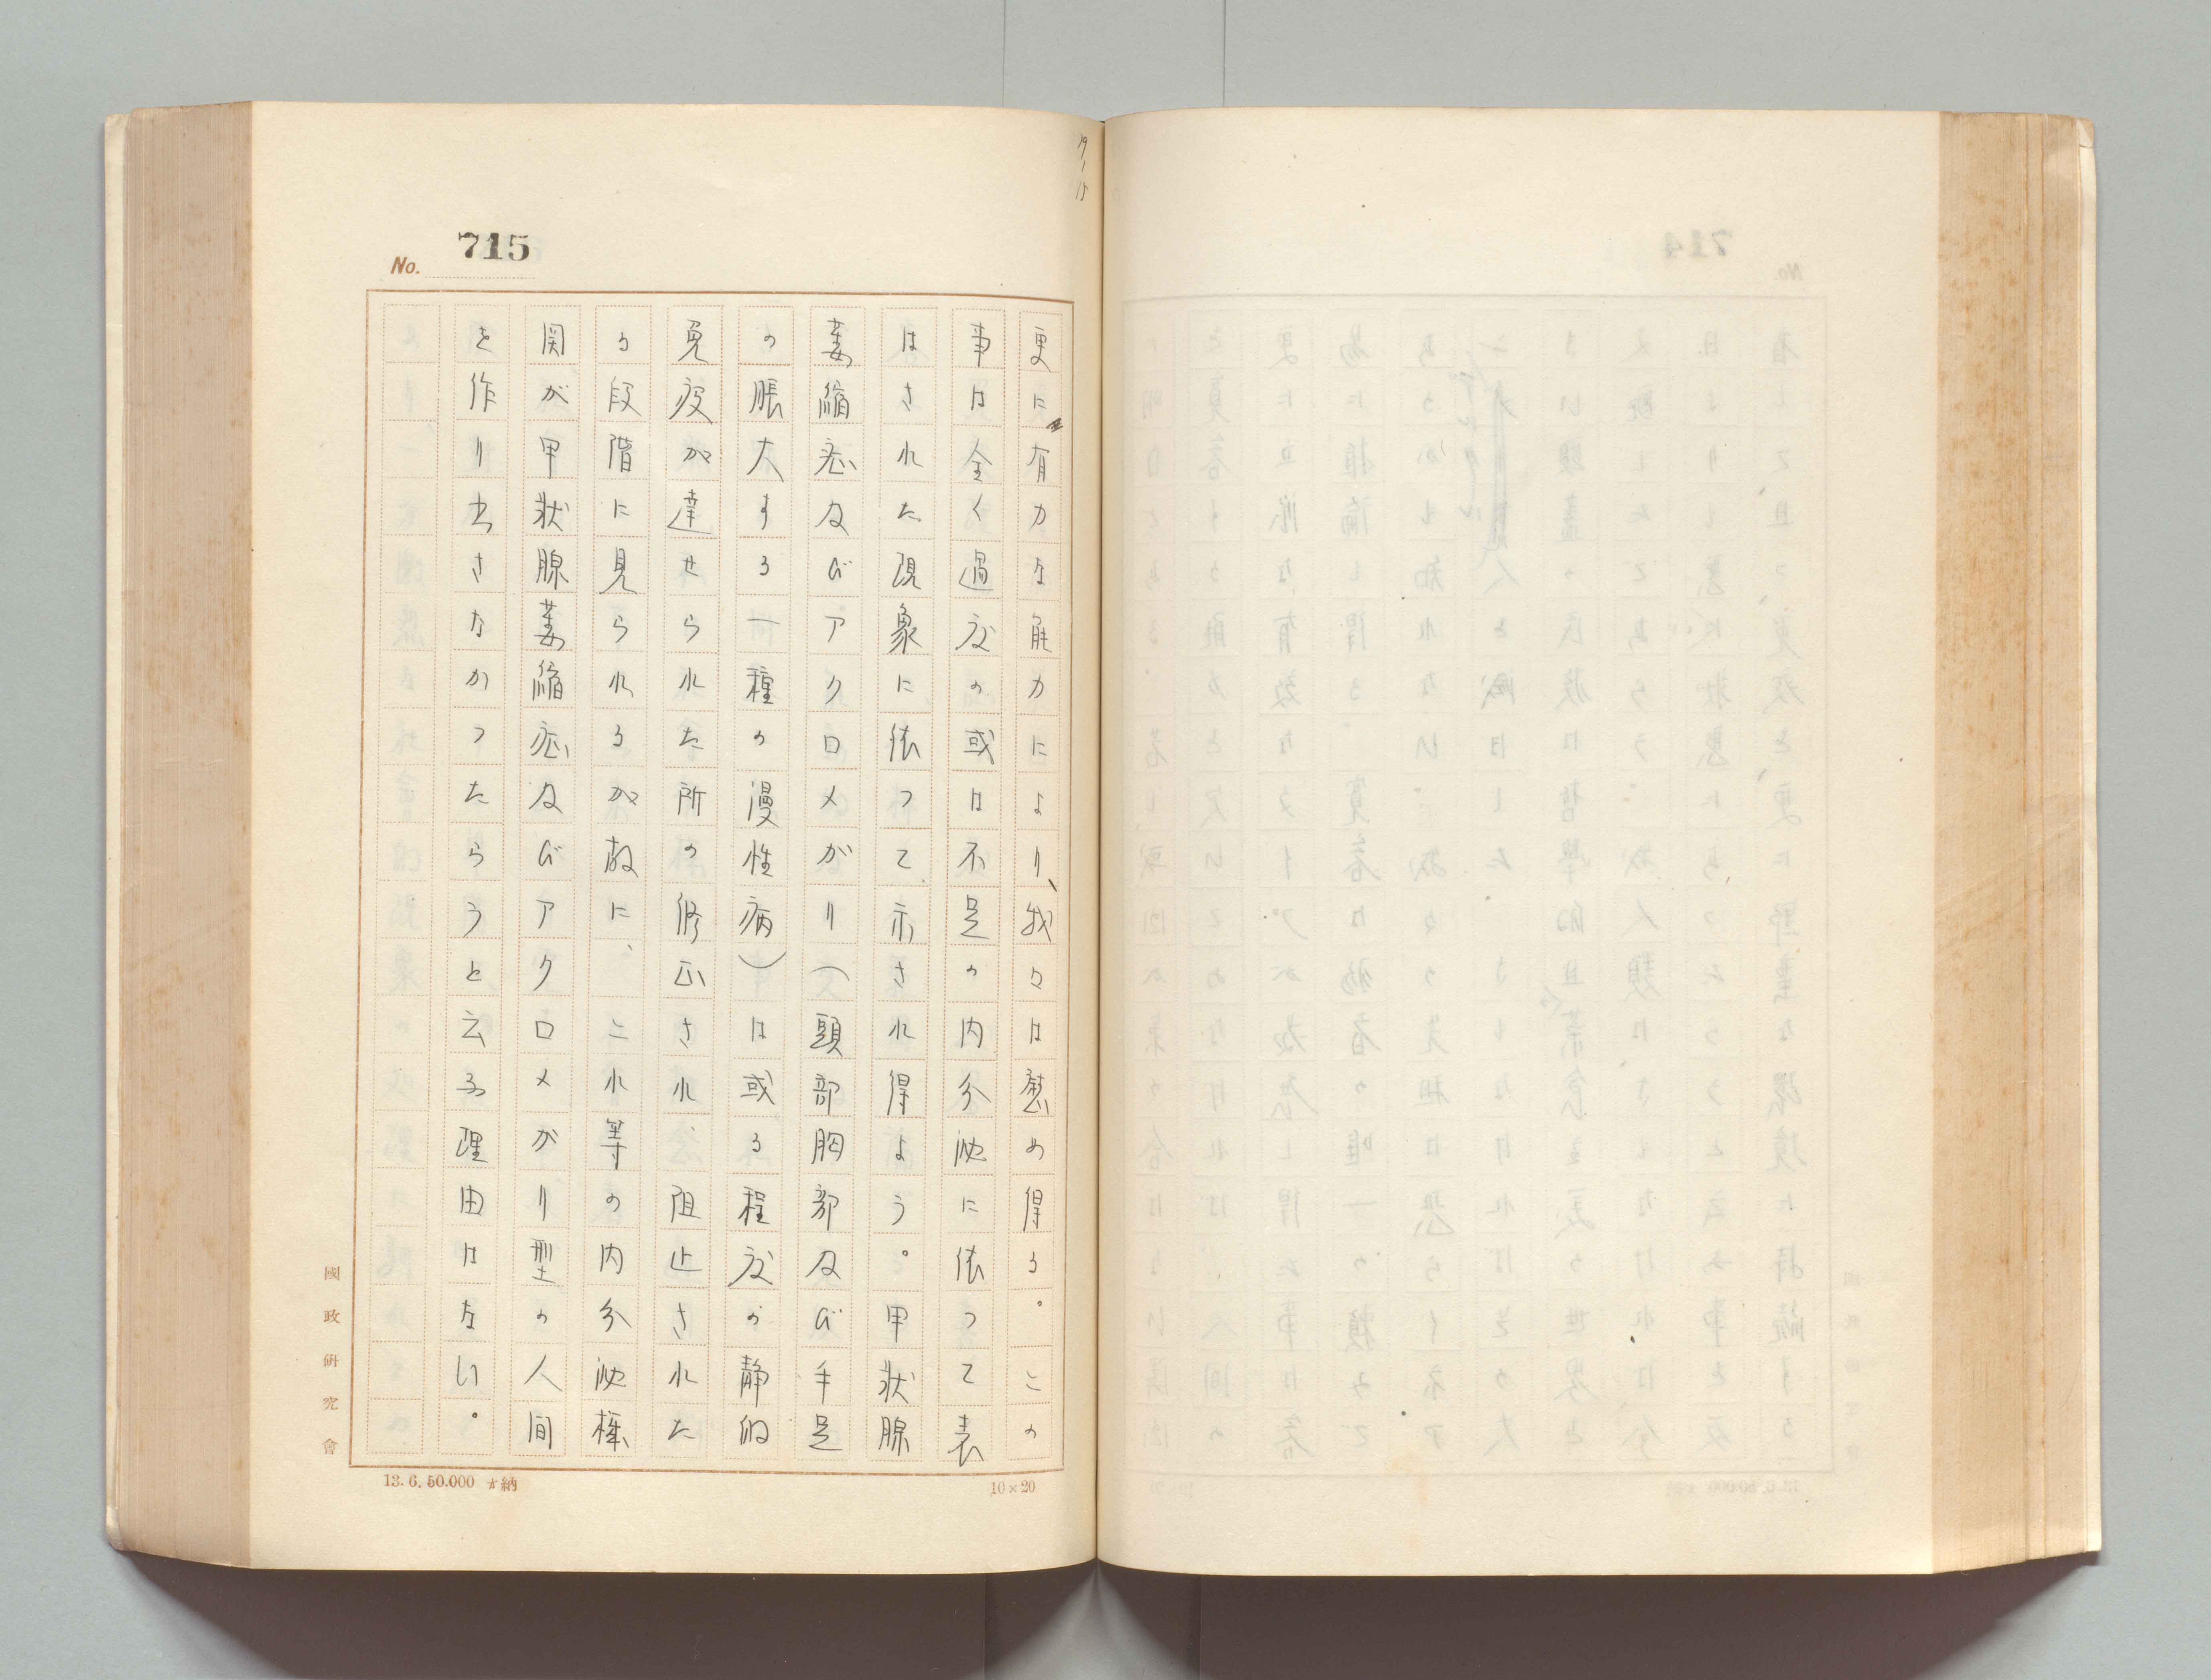 19/15
No. 715
更に有力な能力により、我々は慰め得る。この
事は全く過度の或は不足の内分泌に依つて表
はされた現象に依つて示され得よう。甲状腺
萎縮症及びアクロメガリ(頭部胸部及び手足
の脹大する一種の漫性病)は或る程度の静的
免疫が達せられた所の修正され、阻止された
る段階に見られるが故に、これ等の内分泌機
関が甲状腺萎縮症及びアクロメガリ型の人間
を作り出さなかつたらうと云ふ理由はない。
國政研究會
13.6.50.000 納
10×20